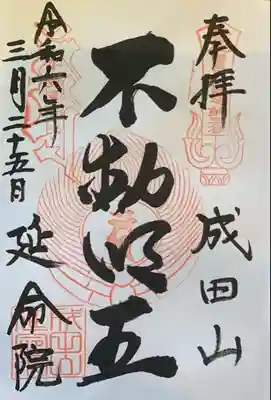 奉拝
成田山
不動明王
令和六年
三月二十五日
延命院